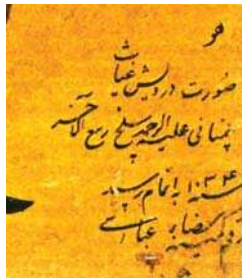 هو
صورت درویش غیاث
سمنانی علیه الرحمه سلخ ربیع الآخر
سنه ۱۰۳۴ باتمام رسید
کمینه رضاء عباسی